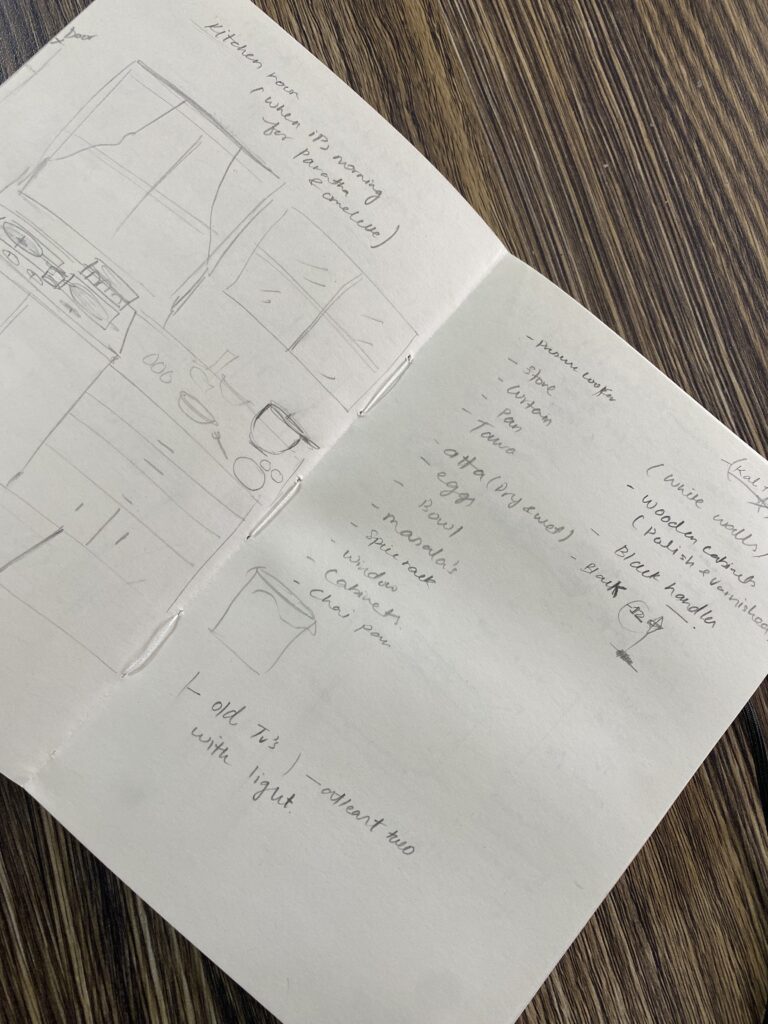 Door
Kitchen room
(when it's morning
for Paratha
& omelette)
- Pressure cooker
- Stove
- Pan
- Tawa
- atta (Dry & wet)
- eggs
- Bowl
- masala's
- Spice rack
- Window
- Cabinets.
- Chai pan
(White walls)
- Wooden cabinets
(Polish & varnished
- Black handles
- Black
- old Tv's
with light.
- atleast two